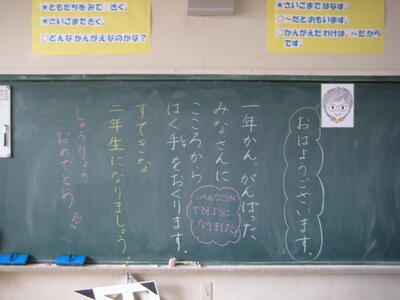 ★ともだちをみて きく。
★さいごまできく。
○どんなかんがえなのかな?
★さいごまではなす。
○〜だとおもいます。
○かんがえたわけは、〜だからです。
おはようございます。
一年かん、がんばった
みなさんに
こころから
はく手をおくります。
いろんなことが
できるように
なりました♪
すてきな
二年生になりましょう。
しゅうりょう
おめでとう